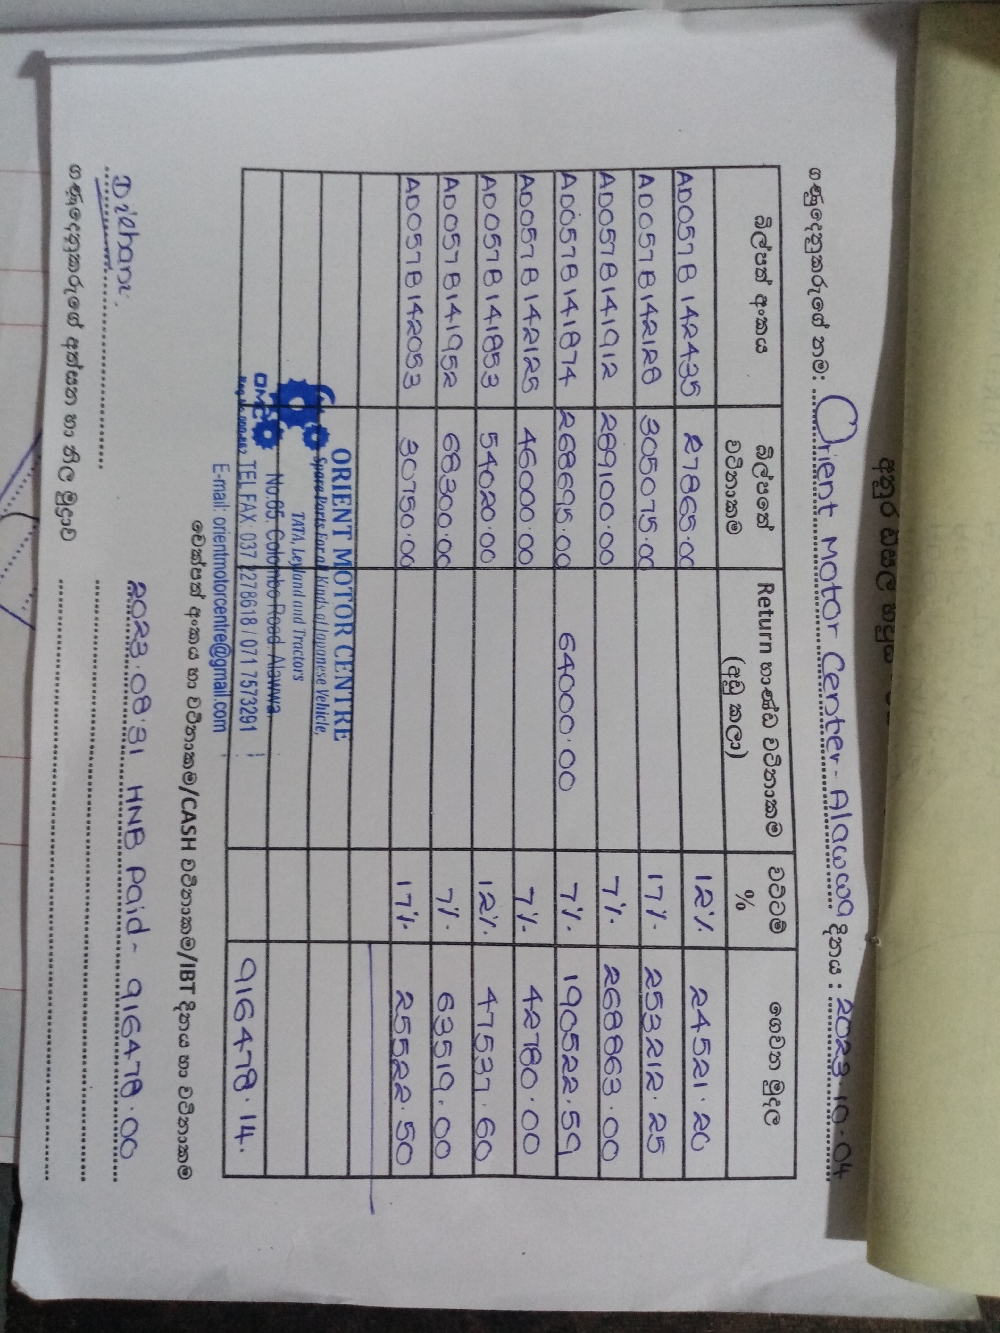 ගණුදෙනුකරුගේ නම: Orient Motor Center - Alawwa දිනය : 2023.10.04
බිල්පත් අංකය බිල්පතේ වටිනාකම Return භාණ්ඩ වටිනාකම (අඩු කලා) වට්ටම් % ගෙවන මුදල
AD057B142435 27865.00 12% 24521.20
AD057B142128 305075.00 17% 253212.25
AD057B141912 289100.00 7% 268863.00
AD057B141874 268695.00 64000.00 7% 190522.59
AD057B142125 46000.00 7% 42780.00
AD057B141853 54020.00 12% 47537.60
AD057B141952 68300.00 7% 63519.00
AD057B142053 30750.00 17% 25522.50
916478.14
ORIENT MOTOR CENTRE
Spare Parts For all Kinds of Japanese Vehicle,
TATA Leyland and Tractors
OMC No.05, Colombo Road, Alawwa.
TEL FAX 037 2278618 / 071 7573291
E-mail: orientmotorcentre@gmail.com
චෙක්පත් අංකය හා වටිනාකම/CASH වටිනාකම/IBT දිනය හා වටිනාකම
Dilhani.
2023.08.31 HNB Paid - 916478.00
ගණුදෙනුකරුගේ අත්සන හා නිල මුද්‍රාව